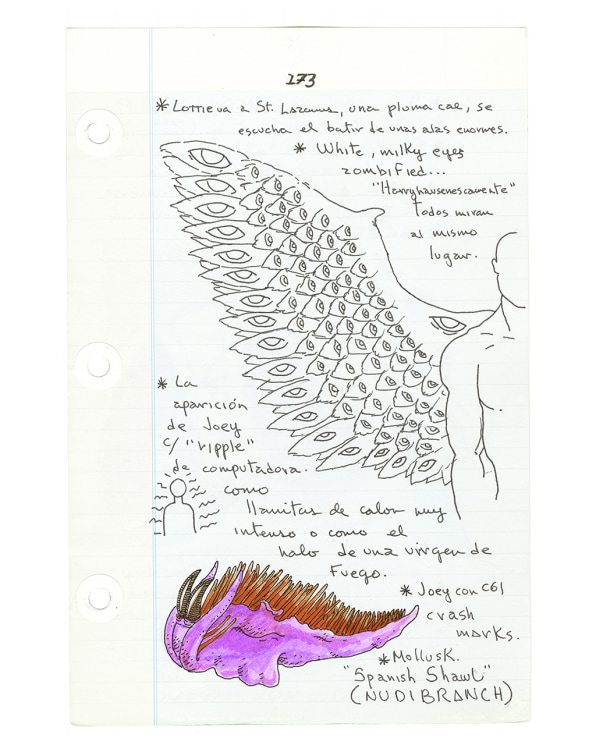 273
* Lottie va a St. Lazarus, una pluma cae, se
escucha el batir de unas alas enormes.
* White, milky eyes
zombified...
"Harryhausenescamente"
todos miran
al mismo
lugar.
* La
aparición
de Joey
c/ "ripple"
de computadora.
como
llamitas de calor muy
intenso o como el
halo de una virgen de
Fuego.
* Joey con
crash
marks.
* Mollusk.
"Spanish Shawl"
(NUDIBRANCH)